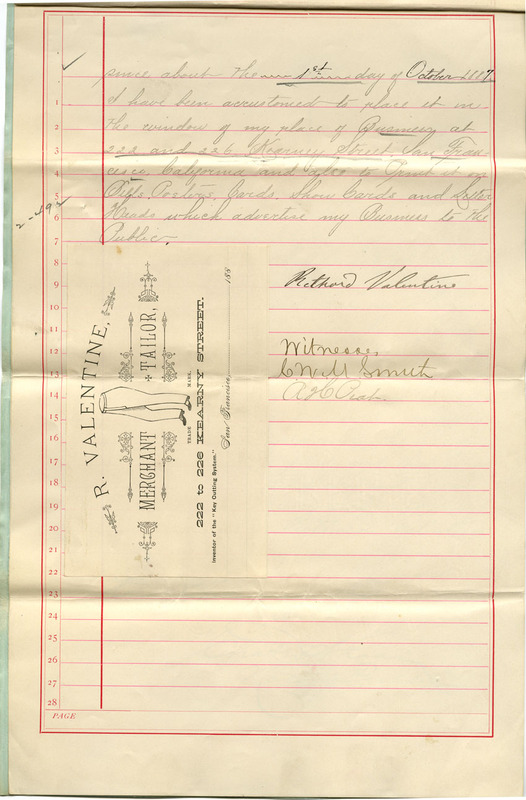 since about the 1st day of October 1887.
I have been accustomed to place it in
the window of my place of Business at
222 and 226 Kearney Street San Fran-
cisco, California and also to Print it on
Bills, Posters, Cards, Show Cards and Letter
Heads which advertise my Business to the
Public.
2-492
Richard Valentine
Witnesses,
C W M Smith
R. VALENTINE,
MERCHANT TAILOR,
TRADE MARK.
222 to 226 KEARNY STREET.
Inventor of the "Key Cutting System."
San Francisco, 188
1
2
3
4
5
6
7
8
9
10
11
12
13
14
15
16
17
18
19
20
21
22
23
24
25
26
27
28
PAGE